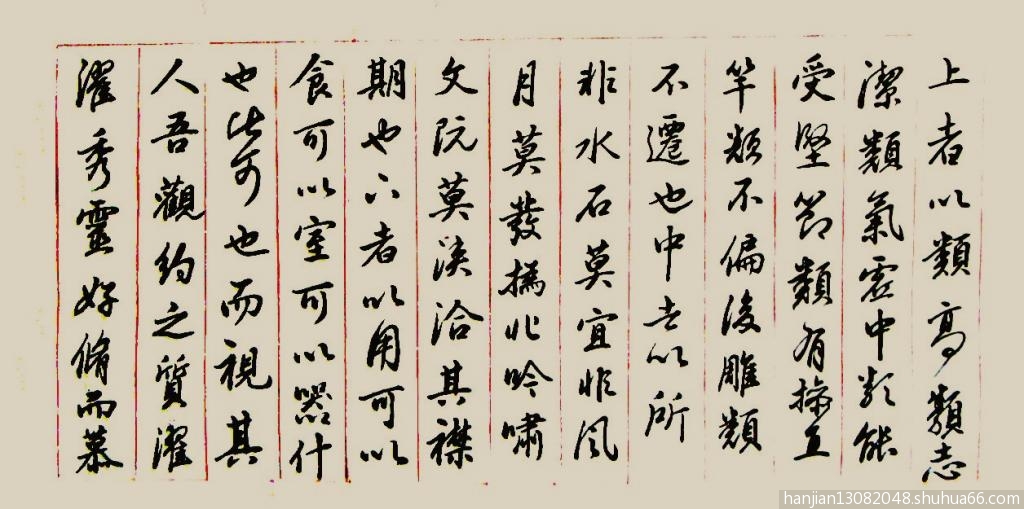 上者以類高類志
潔類氣虛中類能
受堅節類有操立
竿類不偏後雕類
不遷也中者以所
非水石莫宜非風
月莫發撝非吟嘯
文阮莫浹洽其襟
期也下者以用可以
食可以室可以器什
也皆可也而視其
人吾觀約之質濯
濯秀靈好脩而慕
hanjian13082048.shuhua66.com